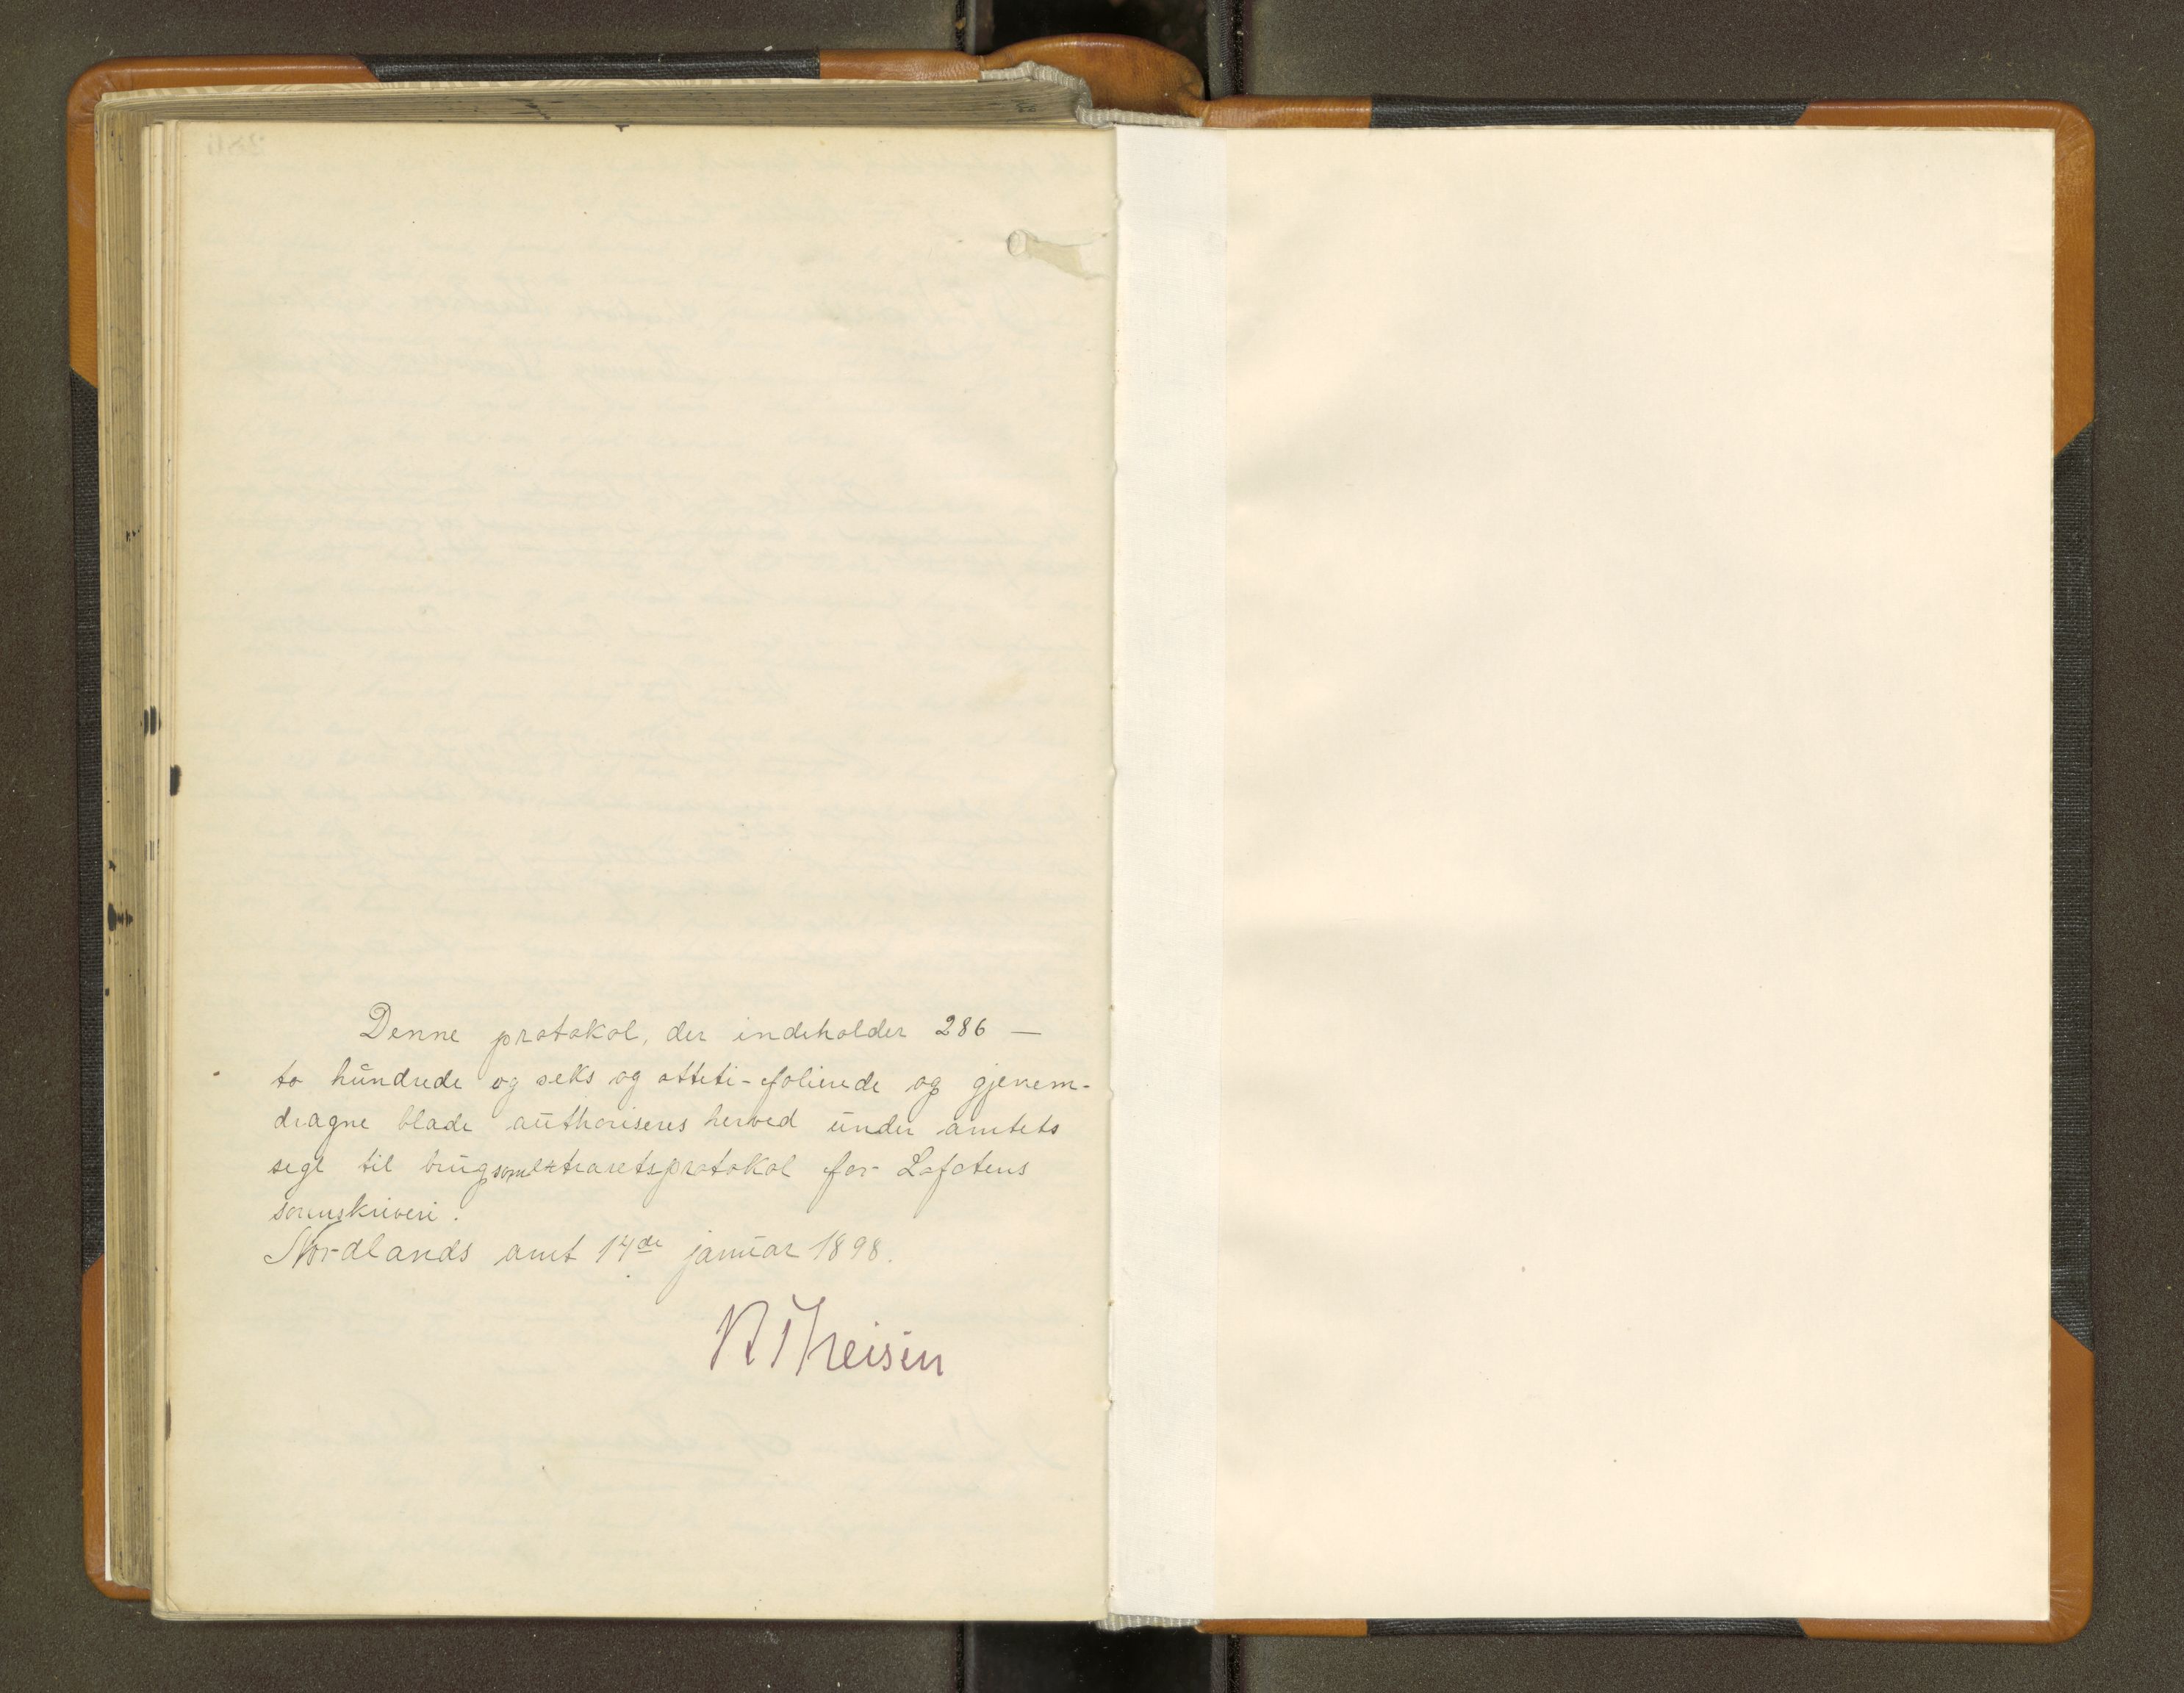 Denne protokol, der indeholder 286 —
to hundrede og seks og otteti - folierede og gjenem-
dragne blade authoriseres herved under amtets
segl til brug som extraretsprotokol for Lofotens
sorenskriveri.
Nordlands amt 14de januar 1898.
R Theisen